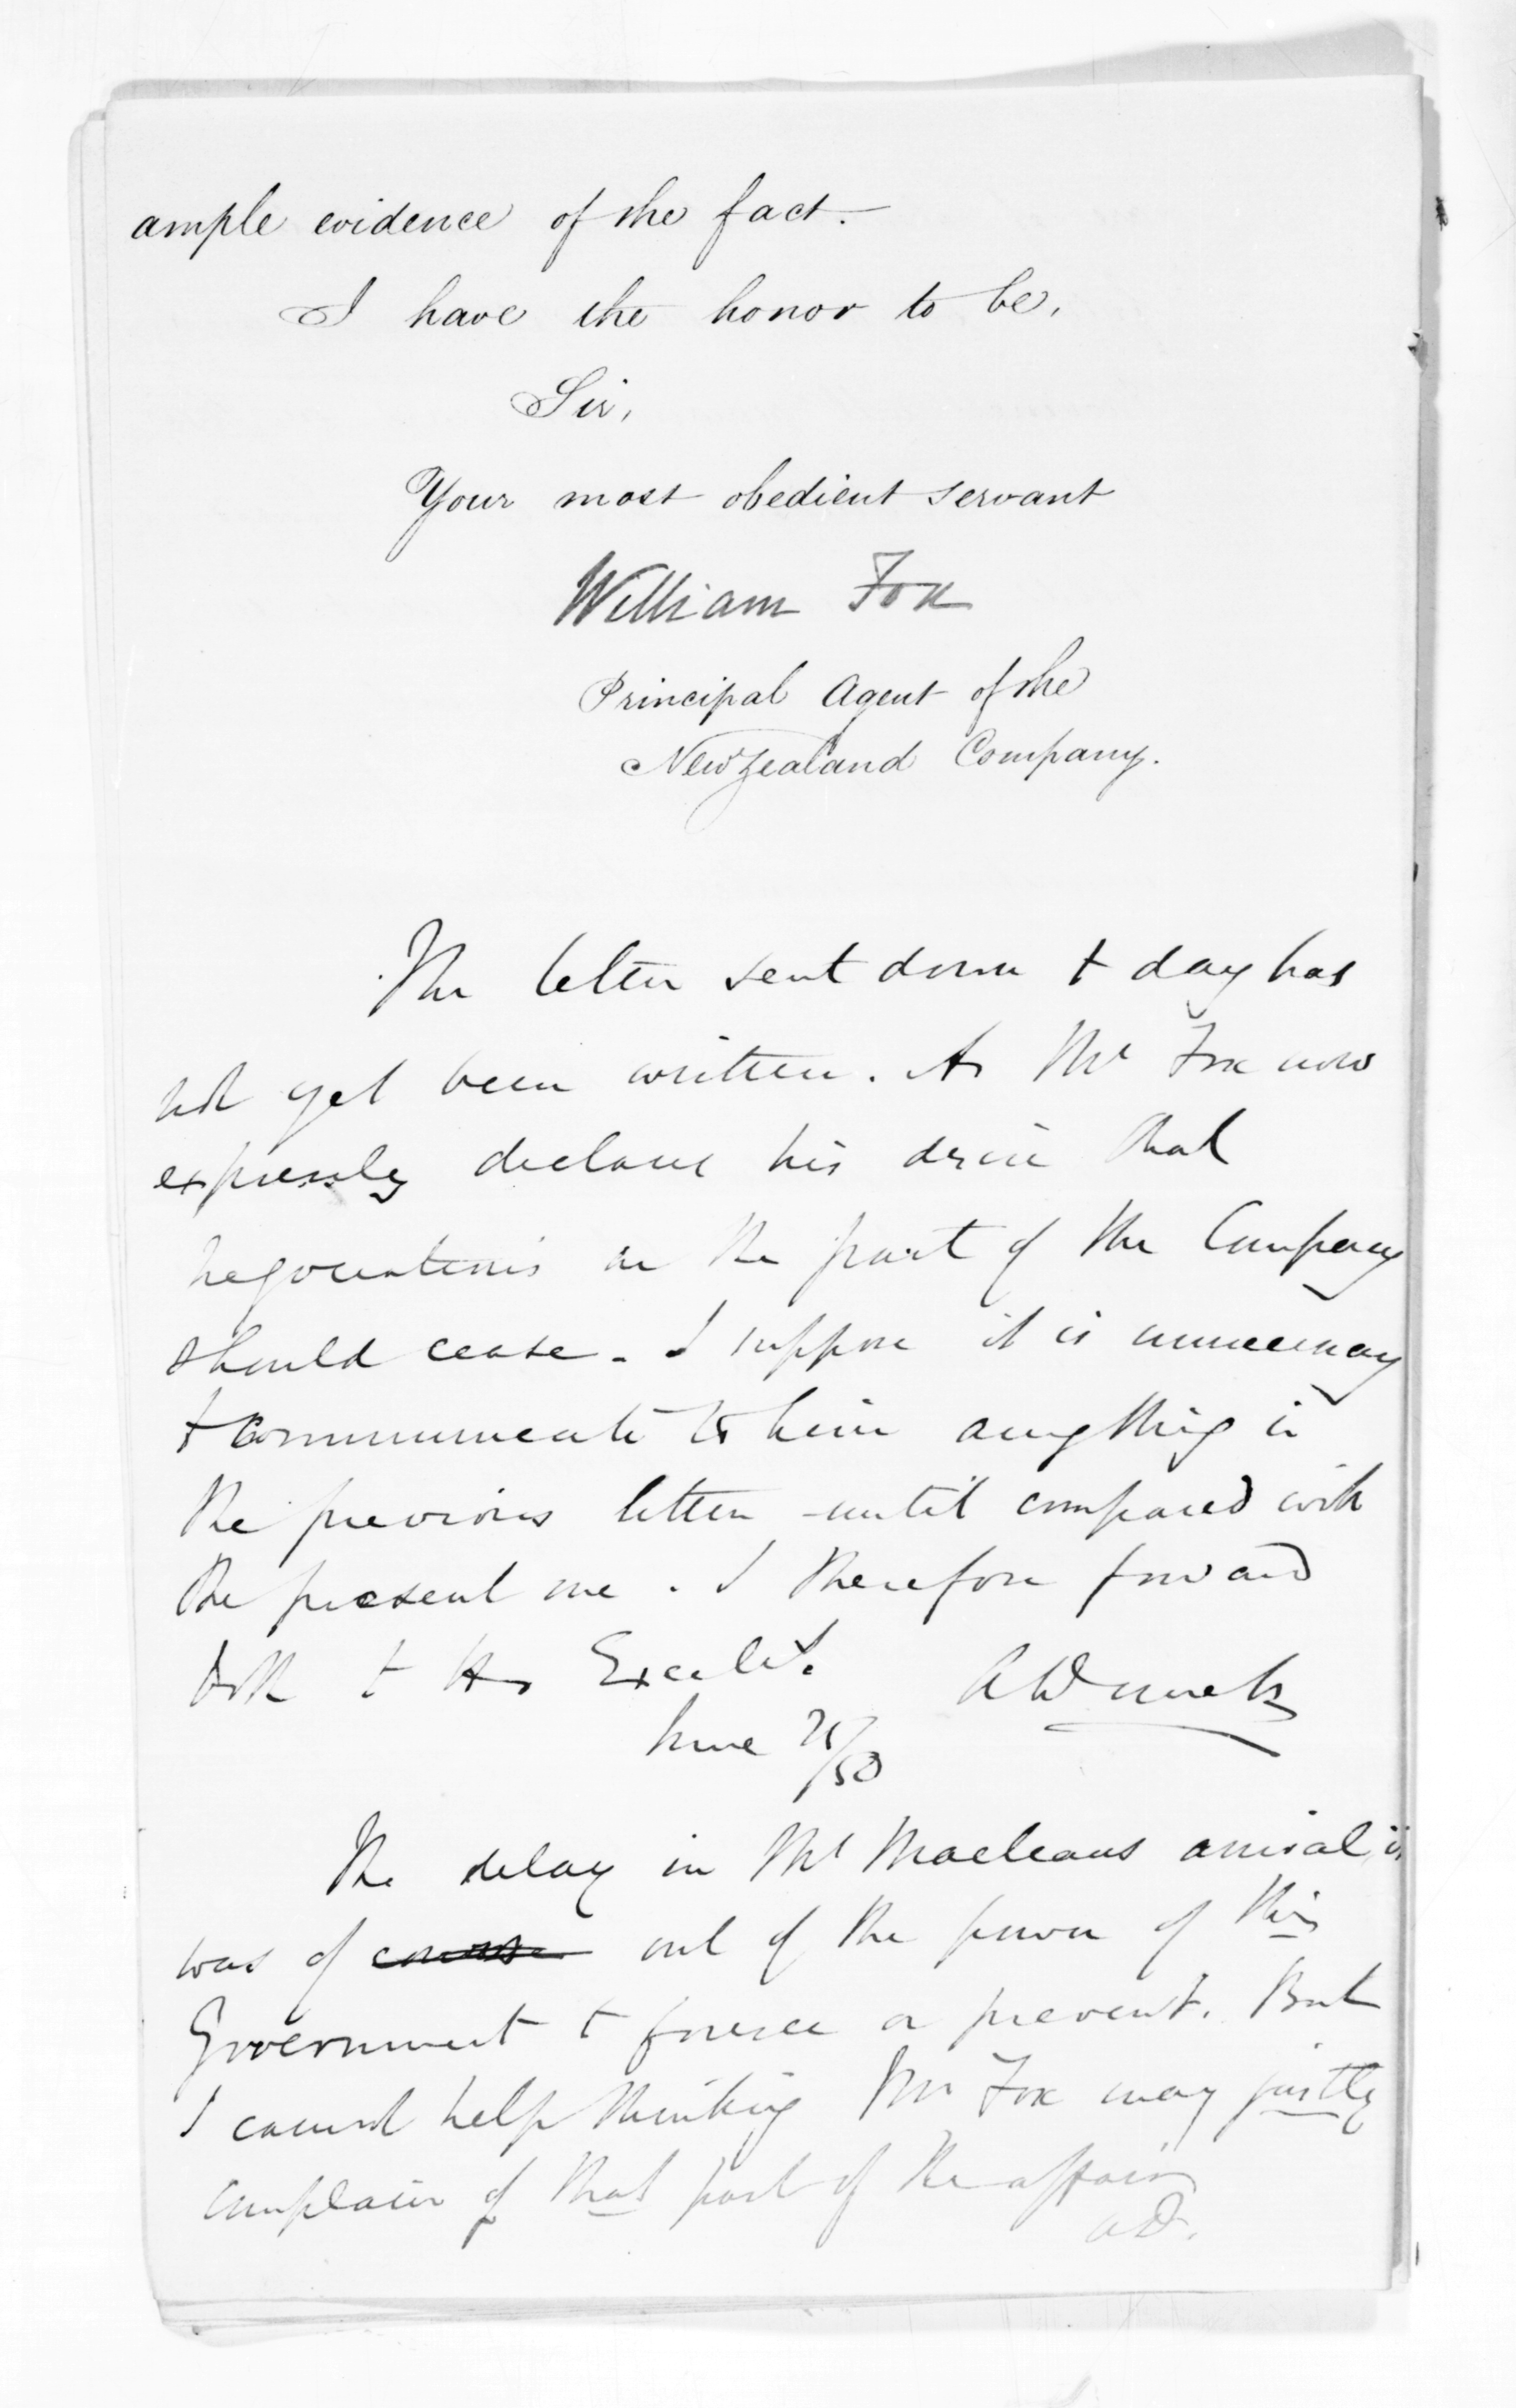 ample evidence of the fact.—
I have the honor to be,
Sir,
Your most obedient servant
William Fox
Principal Agent of the
New Zealand Company.
The letter sent down to day has
not yet been written. As Mr Fox now
expressly declares his desire that
negociations on the part of the Company
should cease - I suppose it is unnecessary
to communicate to him anything in
the previous letter - until compared with
the present one. I therefore forward
both to His Excelly.
ADomett
June 21/50
The delay in Mr Macleans arrival, it
was of course out of the power of this
Government to foresee or prevent. But
I cannot help thinking Mr Fox may justly
complain of that part of the affair
AD.